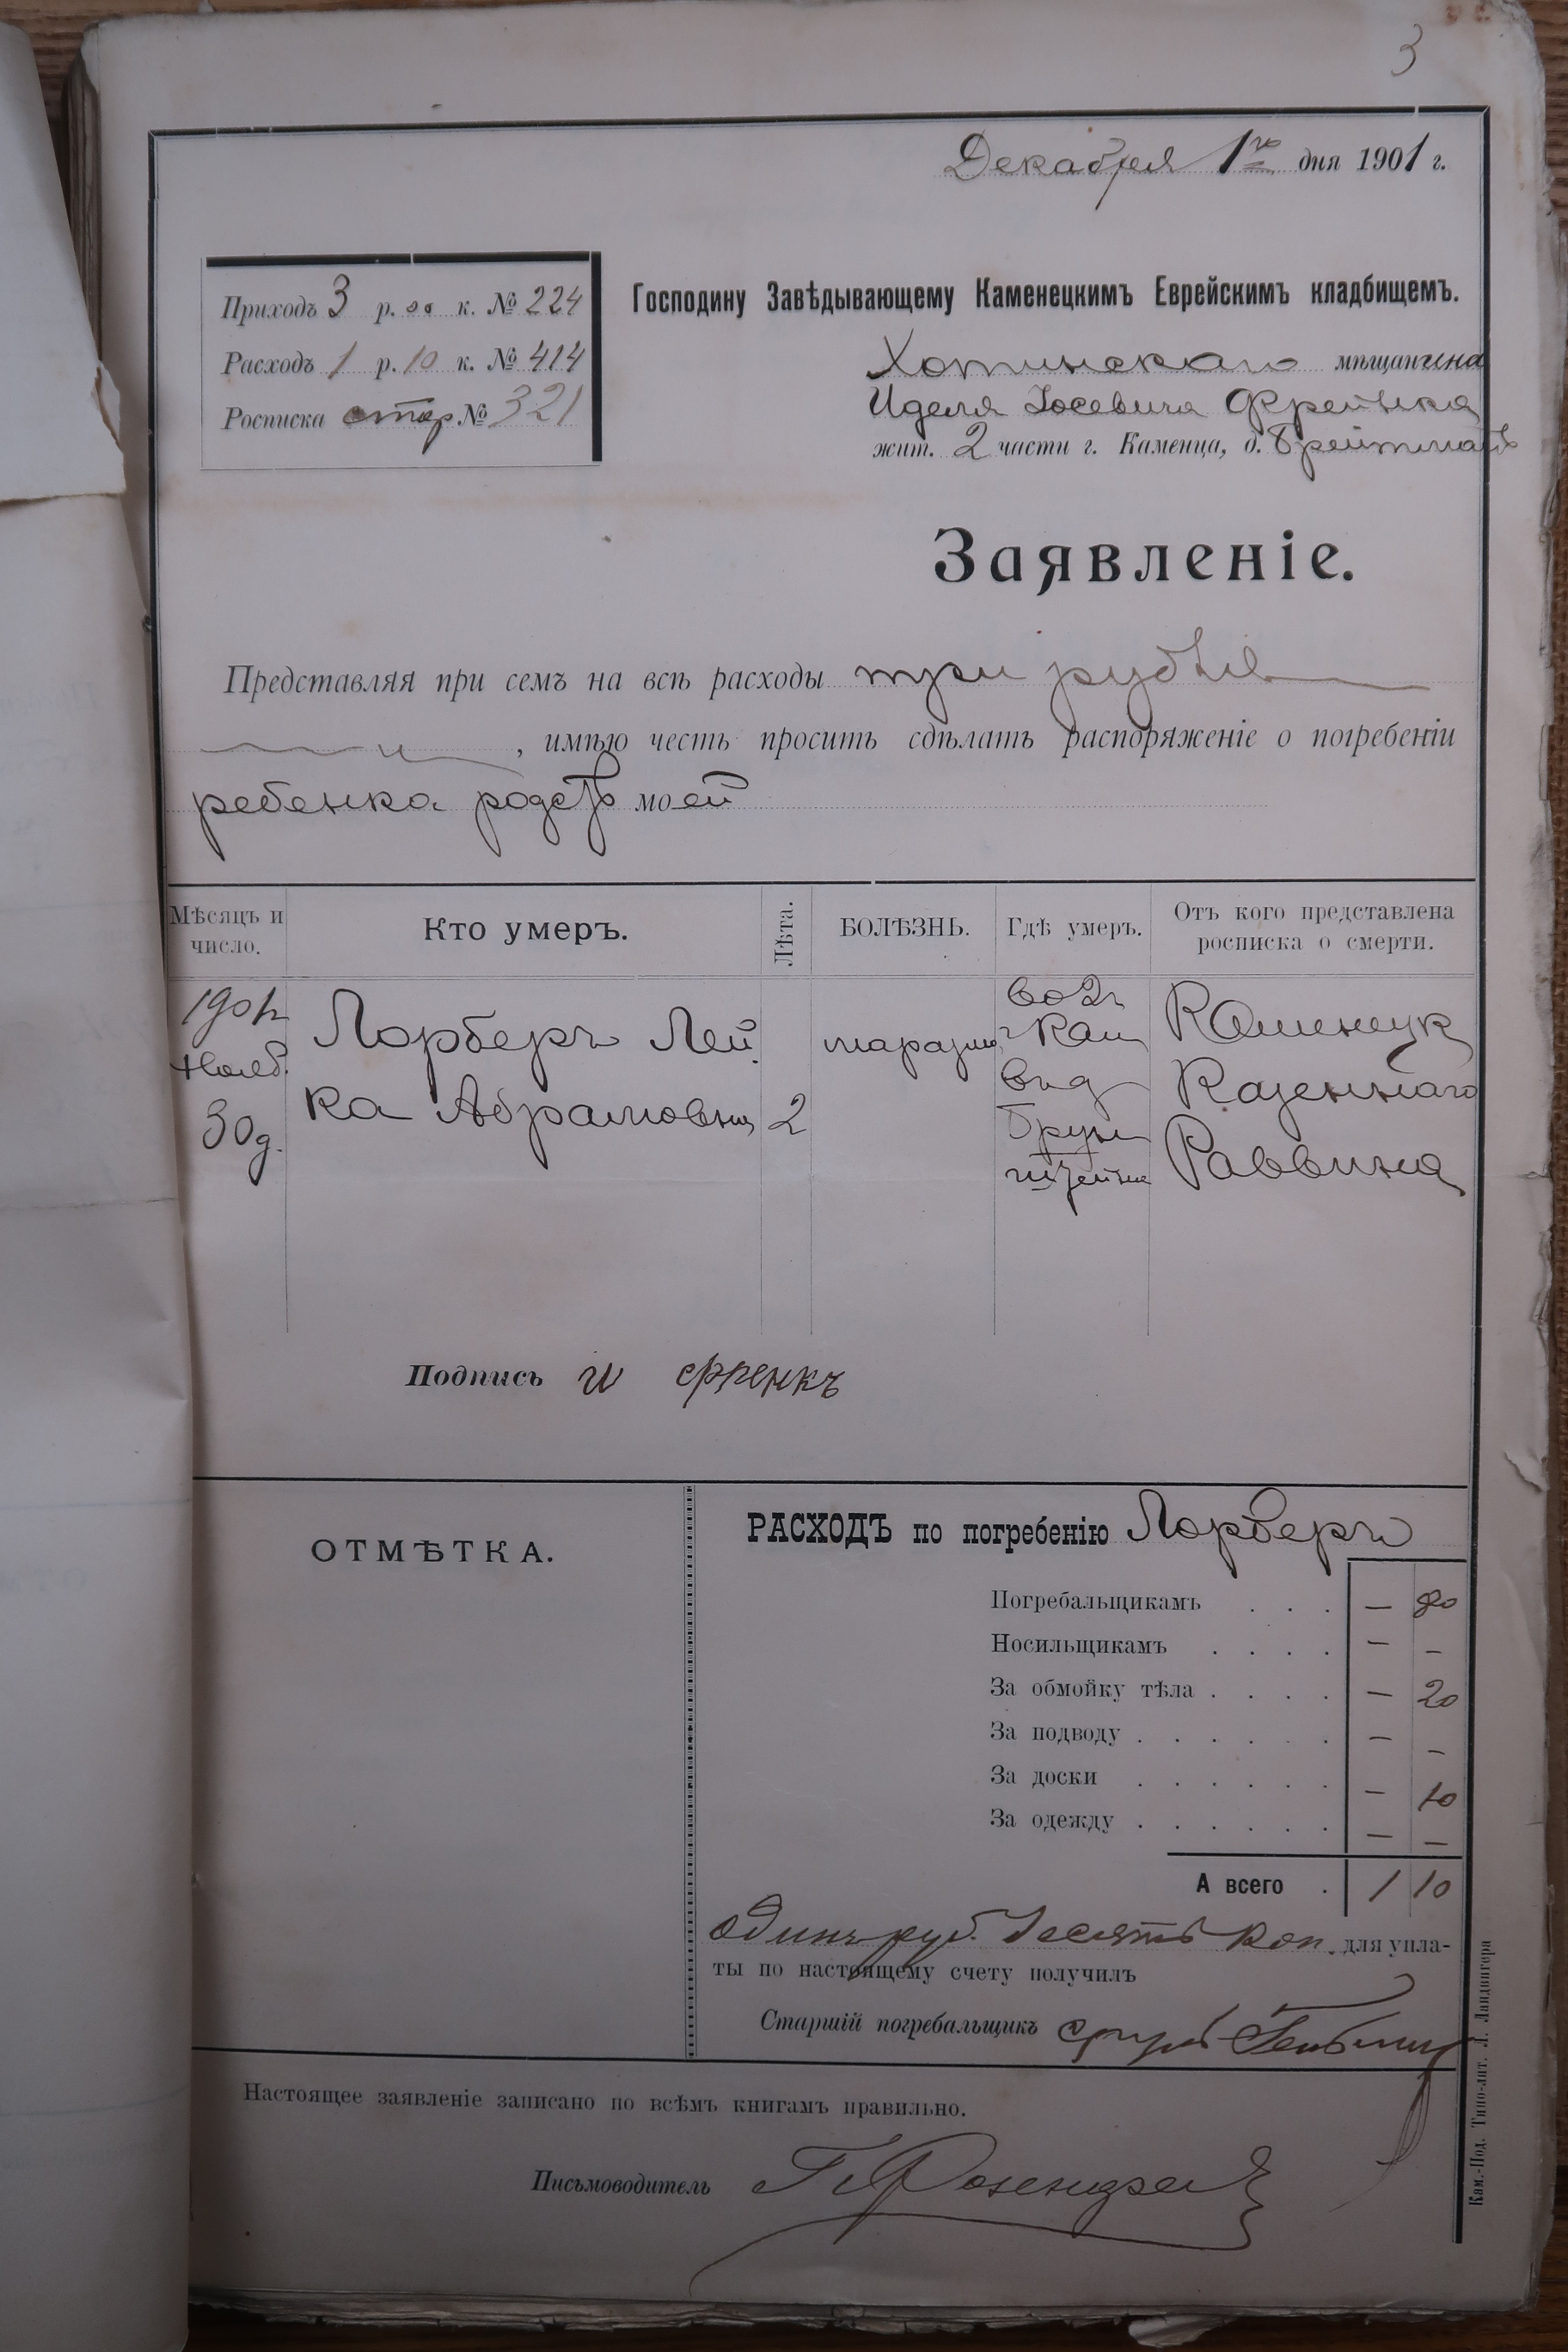 3
Декабря 1го дня 1901 г.
Приходъ 3 р. 00 к. № 224
Расходъ 1 р. 10 к. № 414
Росписка стар № 321
Господину Завѣдывающему Каменецкимъ Еврейскимъ кладбищемъ.
Хотинскаго мѣщанина
Иделя Іосевича Френка
жит. 2 части г. Каменца, д.
Заявленіе.
Представляя при семъ на всѣ расходы три рубля
, имѣю честь просить сдѣлать распоряженіе о погребеніи
ребенка родств моей
Мѣсяцъ и число.
Кто умеръ.
Лѣта.
БОЛѢЗНЬ.
Гдѣ умеръ.
Отъ кого представлена росписка о смерти.
1901 г
Нояб.
30 д.
Лорберъ Лей
ка Абрамовна
2
маразмъ
во 2 ч
г Кам
въ д
Брун
штейна
Каменецк
Казеннаго
Раввина
Подпись И Френкъ
ОТМѢТКА.
РАСХОДЪ по погребенію Лорберъ
Погребальщикамъ . . . — 80
Носильщикамъ . . . . — —
За обмойку тѣла . . . . — 20
За подводу . . . . . . — —
За доски . . . . . . — 10
За одежду . . . . . . — —
А всего . 1 10
Одинъ руб. десять коп. для упла-
ты по настоящему счету получилъ
Старшій погребальщикъ
Настоящее заявленіе записано по всѣмъ книгамъ правильно.
Письмоводитель
Кам.-Под. Типо-лит. Л. Ландвигера